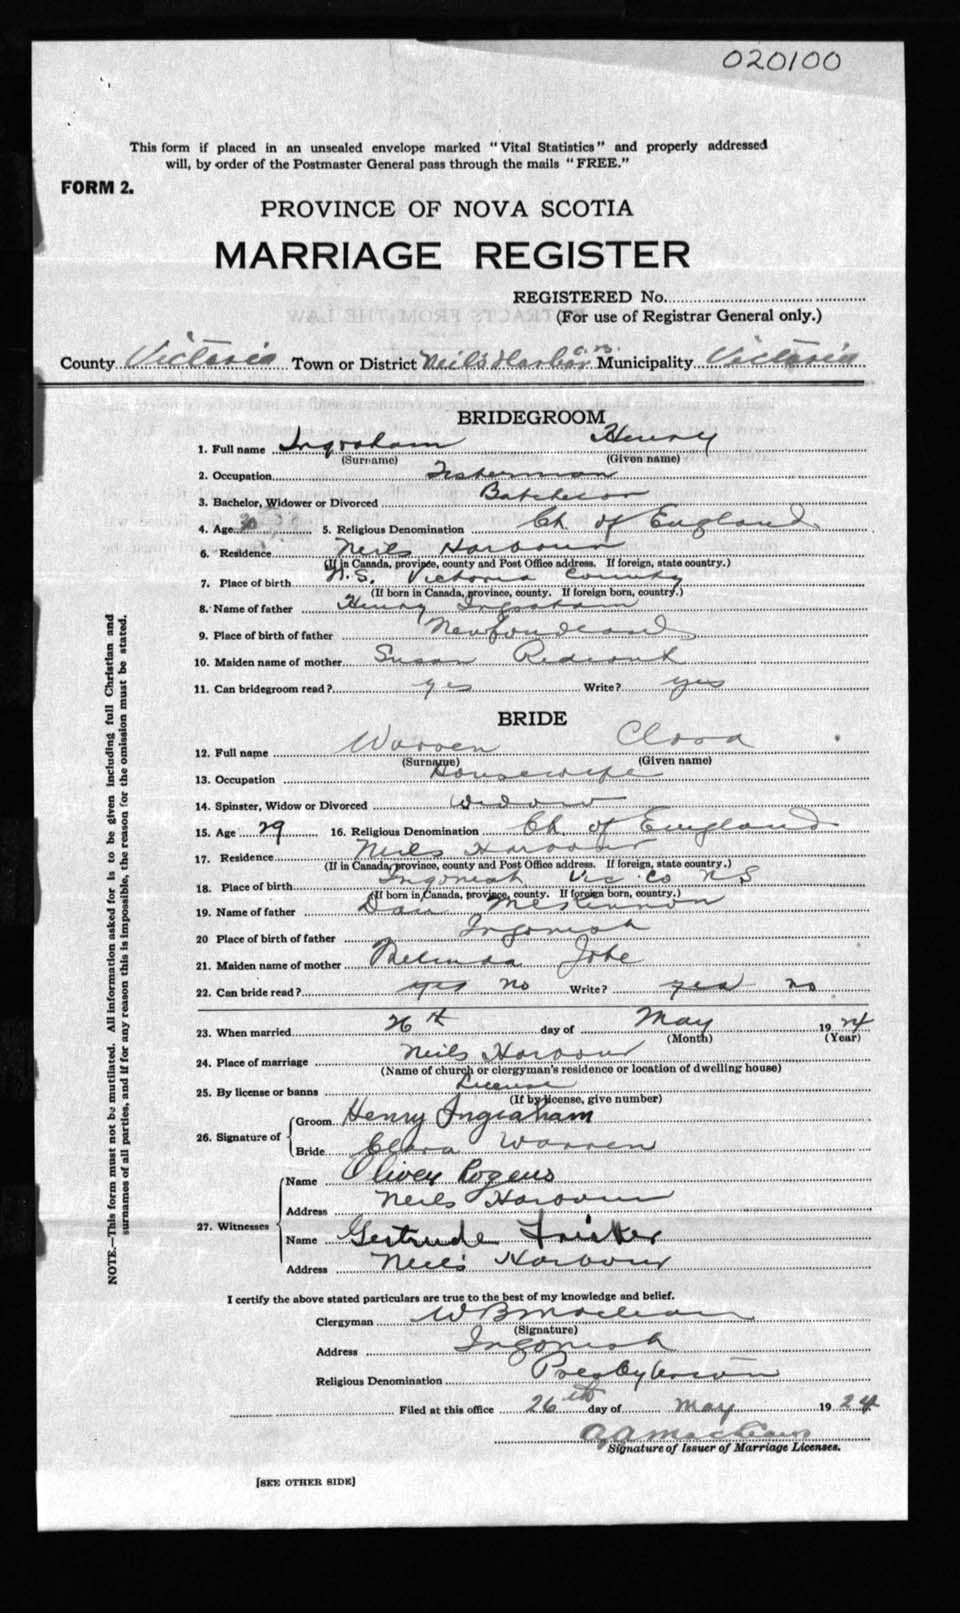 020100
This form if placed in an unsealed envelope marked "Vital Statistics" and properly addressed
will, by order of the Postmaster General pass through the mails "FREE."
FORM 2.
PROVINCE OF NOVA SCOTIA
MARRIAGE REGISTER
REGISTERED No.
(For use of Registrar General only.)
County Victoria Town or District Neil's Harbor C.B. Municipality Victoria
BRIDEGROOM
1. Full name Ingraham Henry
(Surname) (Given name)
2. Occupation Fisherman
3. Bachelor, Widower or Divorced Batchelor
4. Age 30 5. Religious Denomination Ch. of England
6. Residence Neils Harbour
(If in Canada, province, county and Post Office address. If foreign, state country.)
7. Place of birth N.S. Victoria County
(If born in Canada, province, county. If foreign born, country.)
8. Name of father Henry Ingraham
9. Place of birth of father Newfoundland
10. Maiden name of mother Susan
11. Can bridegroom read? yes Write? yes
BRIDE
12. Full name Warren Clara
(Surname) (Given name)
13. Occupation Housewife
14. Spinster, Widow or Divorced Widow
15. Age 29 16. Religious Denomination Ch. of England
17. Residence Neils Harbour
(If in Canada, province, county and Post Office address. If foreign, state country.)
18. Place of birth Ingonish Vic Co N S
(If born in Canada, province, county. If foreign born, country.)
19. Name of father Dan McKinnon
20 Place of birth of father Ingonish
21. Maiden name of mother
22. Can bride read? yes no Write? yes no
23. When married 26th day of May 1924
(Month) (Year)
24. Place of marriage Neils Harbour
(Name of church or clergyman's residence or location of dwelling house)
25. By license or banns License
(If by license, give number)
26. Signature of
Groom Henry Ingraham
Bride Clara Warren
27. Witnesses
Name Oliver Rogers
Address Neils Harbour
Name Gertrude
Address Neil's Harbour
I certify the above stated particulars are true to the best of my knowledge and belief.
Clergyman W B Maclean
(Signature)
Address Ingonish
Religious Denomination Presbyterian
Filed at this office 26th day of May 1924
Signature of Issuer of Marriage Licenses.
[SEE OTHER SIDE]
NOTE.—This form must not be mutilated. All information asked for is to be given including full Christian and
surnames of all parties, and if for any reason this is impossible, the reason for the omission must be stated.